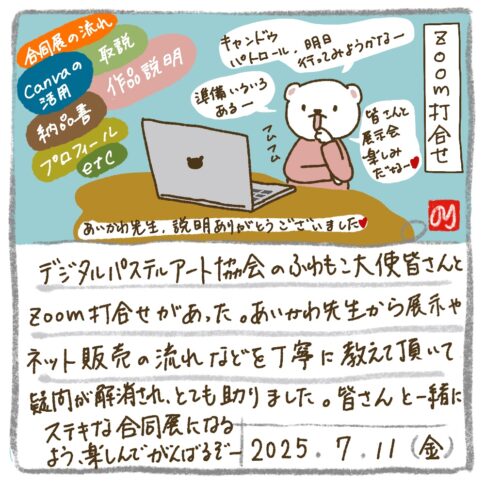 zoom打合せ
合同展の流れ
取説
Canvaの
活用
作品説明
納品書
プロフィール
etc
キャンドゥ
パトロール、明日
行ってみようかなー
準備いろいろ
あるー
フムフム
皆さんと
展示会
楽しみ
だなー
あいかわ先生、説明ありがとうございました
デジタルパステルアート協会のふわもこ大使皆さんと
zoom打合せがあった。あいかわ先生から展示や
ネット販売の流れなどを丁寧に教えて頂いて
疑問が解消され、とても助りました。皆さんと一緒に
ステキな合同展になる
よう、楽しんでがんばるぞー
2025.7.11(金)